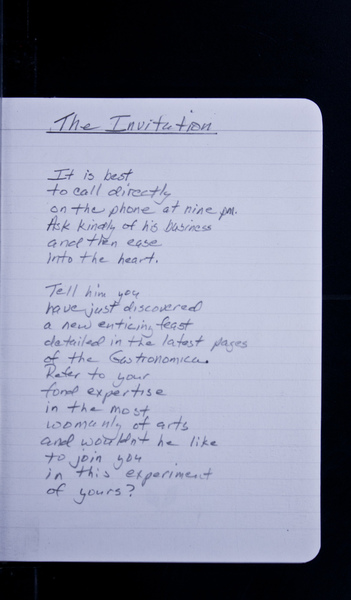 The Invitation
It is best
to call directly
on the phone at nine pm.
Ask kindly of his business
and then ease
into the heart.
Tell him you
have just discovered
a new enticing feast
detailed in the latest pages
of the Gastronomica.
Refer to your
fond expertise
in the most
womanly of arts
and wouldnt he like
to join you
in this experiment
of yours?